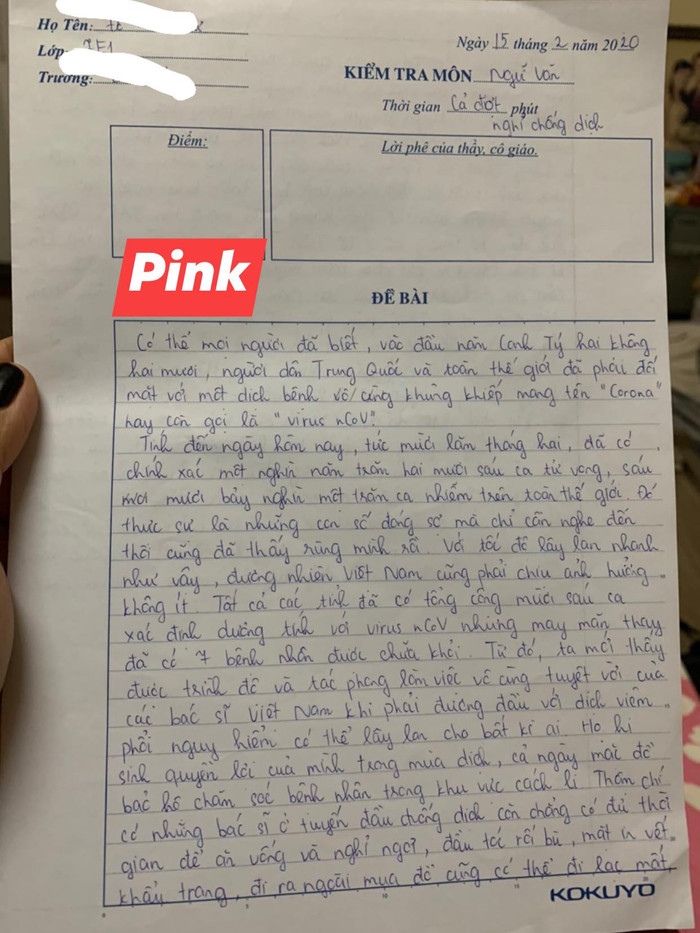 Họ Tên:
Lớp:
Trường:
Ngày 15 tháng 2 năm 2020
KIỂM TRA MÔN Ngữ Văn
Thời gian Cả đợt phút
nghỉ chống dịch
Điểm:
Lời phê của thầy, cô giáo.
Pink
ĐỀ BÀI
Có thể mọi người đã biết, vào đầu năm Canh Tý hai không
hai mươi, người dân Trung Quốc và toàn thế giới đã phải đối
mặt với một dịch bệnh vô cùng khủng khiếp mang tên "Corona"
hay còn gọi là "virus nCoV".
Tính đến ngày hôm nay, tức mười lăm tháng hai, đã có
chính xác một nghìn năm trăm hai mươi sáu ca tử vong, sáu
mươi bảy nghìn một trăm ca nhiễm trên toàn thế giới. Đó
thực sự là những con số đáng sợ mà chỉ cần nghe đến
thôi cũng đã thấy rùng mình rồi. Với tốc độ lây lan nhanh
như vậy, đương nhiên Việt Nam cũng phải chịu ảnh hưởng
không ít. Tất cả các tỉnh đã có tổng cộng mười sáu ca
xác định dương tính với virus nCoV nhưng may mắn thay
đã có 7 bệnh nhân được chữa khỏi. Từ đó, ta mới thấy
được trình độ và tác phong làm việc vô cùng tuyệt vời của
các bác sĩ Việt Nam khi phải đương đầu với dịch viêm
phổi nguy hiểm có thể lây lan cho bất kì ai. Họ hi
sinh quyền lợi của mình trong mùa dịch, cả ngày mặc đồ
bảo hộ chăm sóc bệnh nhân trong khu vực cách li. Thậm chí
có những bác sĩ ở tuyến đầu chống dịch còn chẳng có đủ thời
gian để ăn uống và nghỉ ngơi, đầu tóc rối bù, mặt in vết
khẩu trang, đi ra ngoài mua đồ cũng có thể đi lạc mất,
KOKUYO